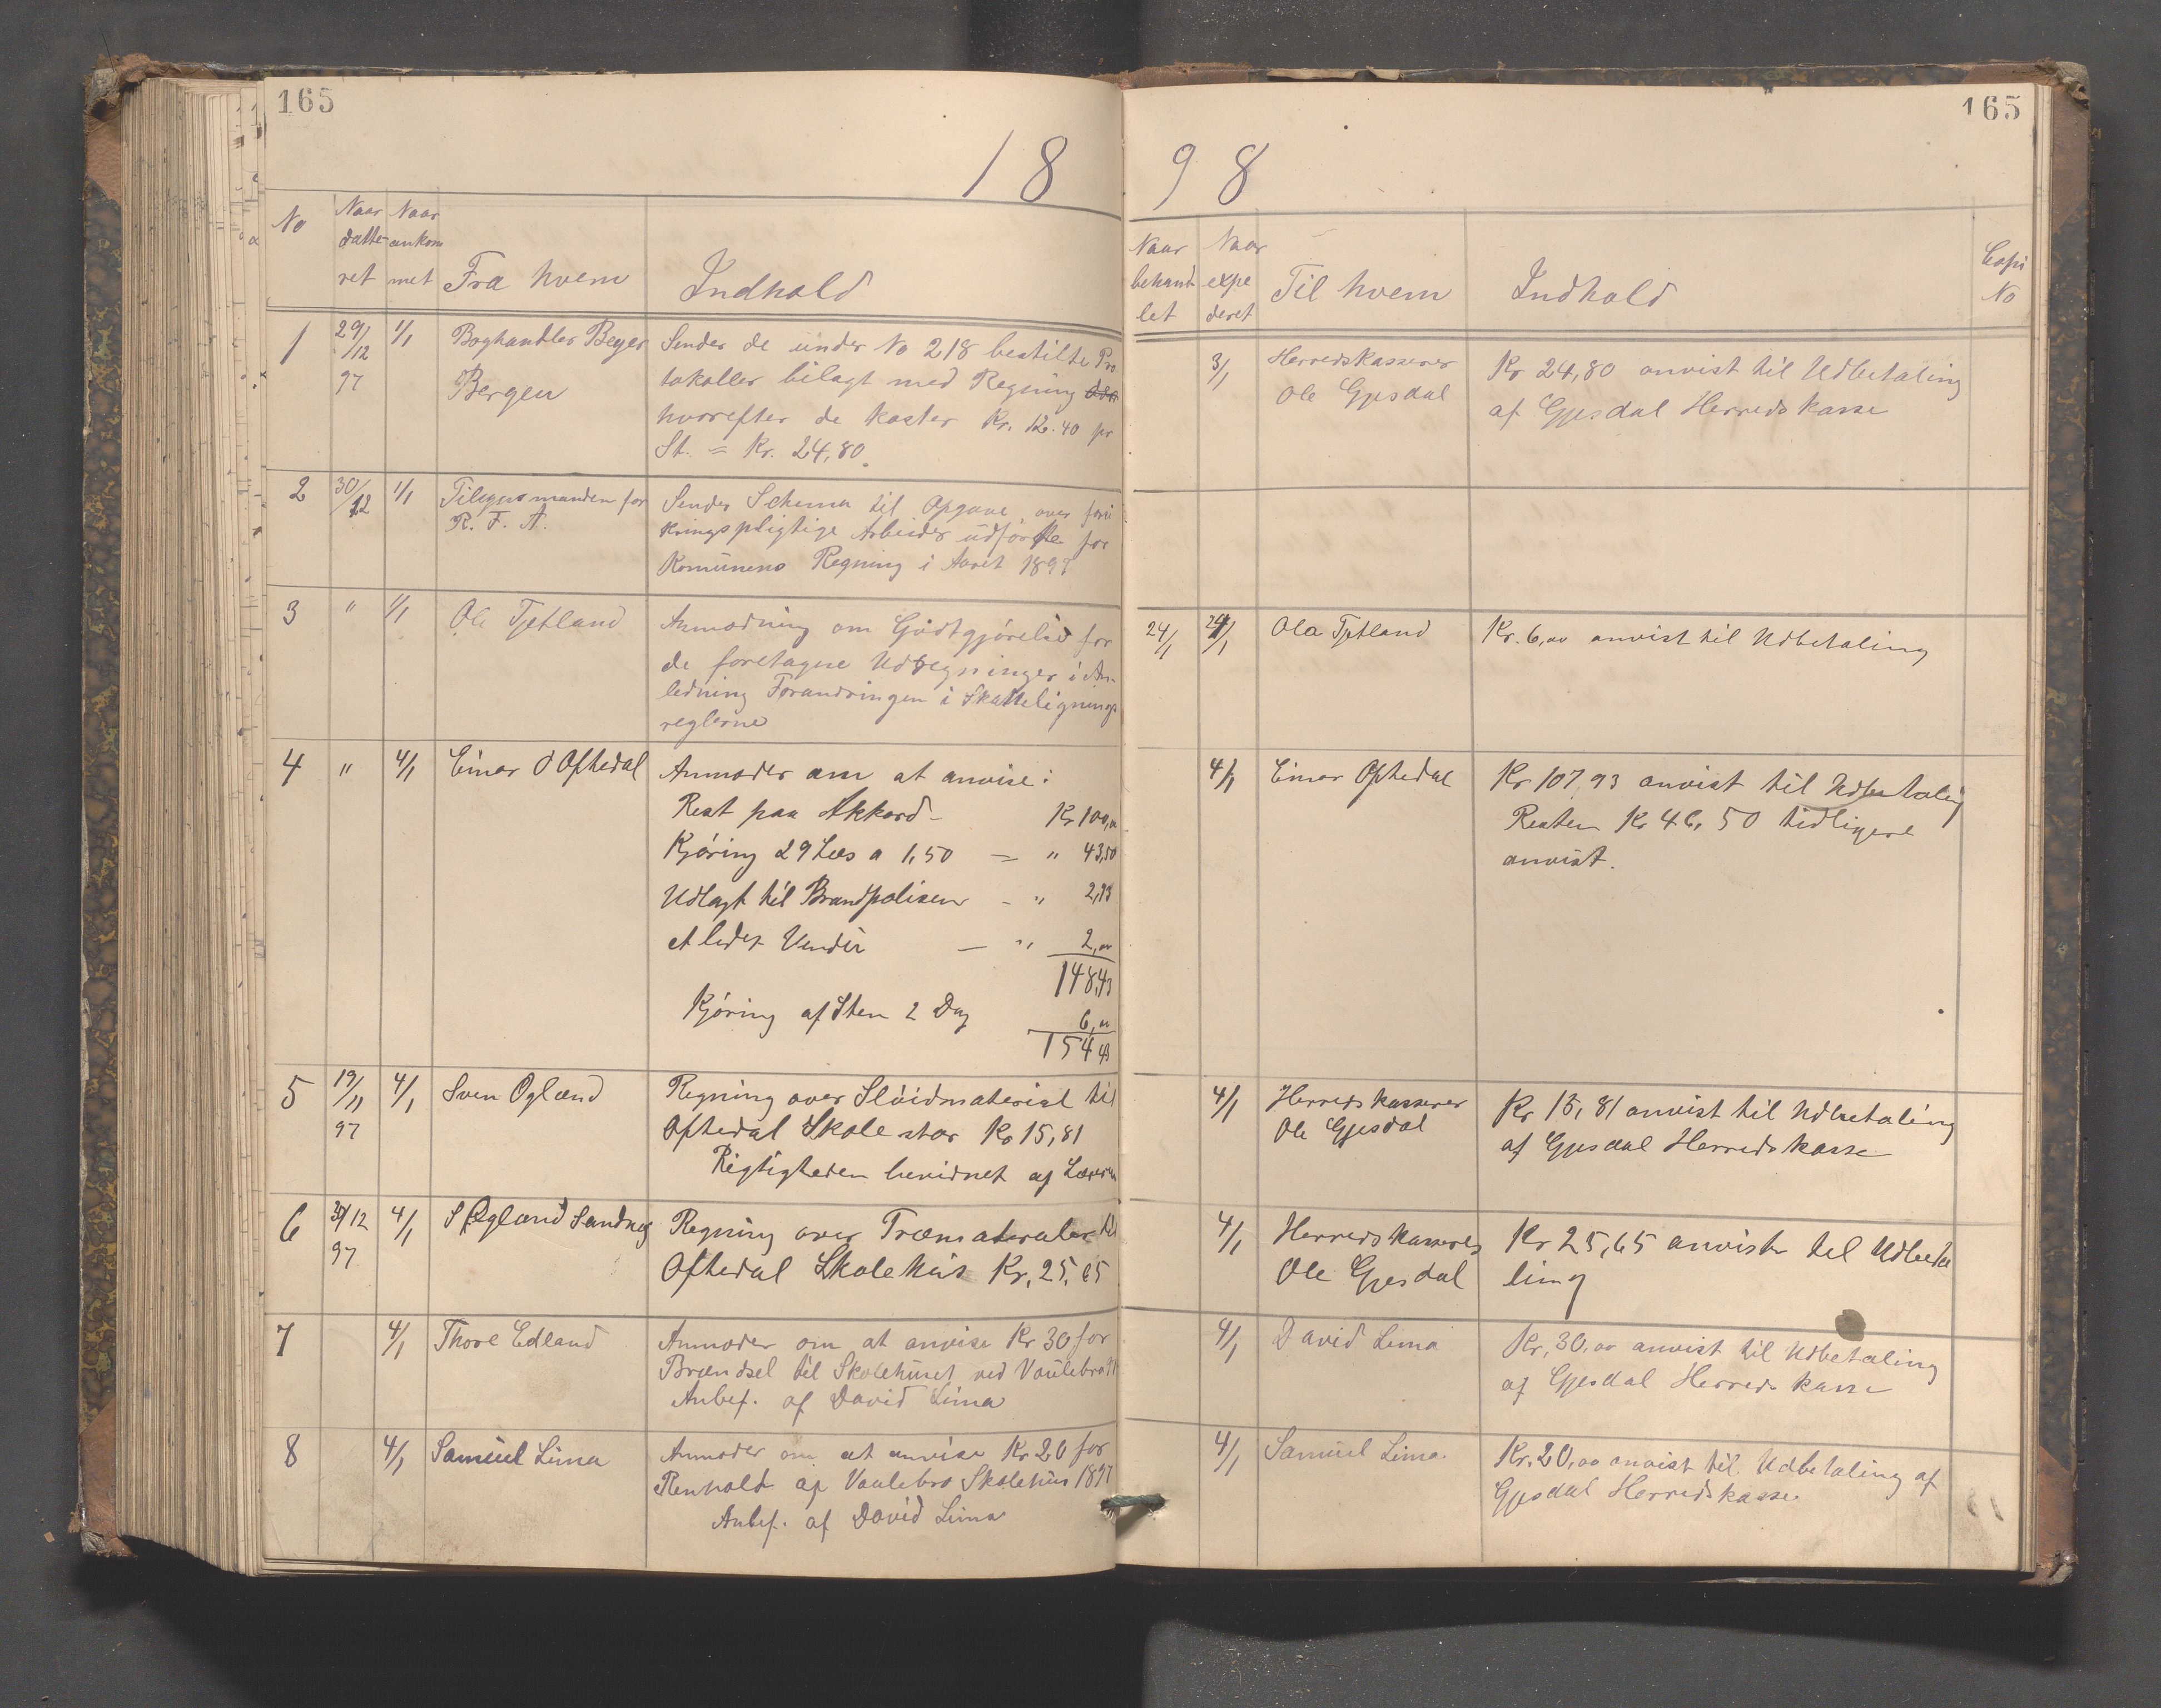 165
165
18 98
No
Naar datte ret
Naar ankom met
Fra hvem
Indhold
Naar behand let
Naar expe deret
Til hvem
Indhold
Copi No
1 29/12 97 1/1 Boghandler Beyer
Bergen
Sender de under No 218 bestilte Pro
tokoller bilagt med Regning
hvorefter de koster Kr. 12.40 pr
St. = Kr. 24,80
3/1 Herredskasserer
Ole Gjesdal
Kr 24,80 anvist til Udbetaling
af Gjesdal Herredskasse
2 30/12 1/1 Tilsynsmanden for
R. F. A.
Sender Schema til Opgave over forsi
kringspligtige Arbeider udførte for
Komunens Regning i Aaret 1897
3 " 1/1 Ole Tjetland
Anmodning om Godtgjørelse for
de foretagne Udregninger i An-
ledning Forandringen i Skattelignings
reglerne
24/1 24/1 Ola Tjetland
Kr. 6,00 anvist til Udbetaling
4 " 4/1 Einar O Oftedal
Anmoder om at anvise:
Rest paa Akkord - Kr 100,00
Kjøring 29 Læs a 1,50 = " 43,50
Udlagt til Brandpolisen - " 2,93
et Vendie - " 2,00
148,43
Kjøring af Sten 2 Dag 6,00
154 43
4/1 Einar Oftedal
Kr 107,93 anvist til Udbetaling
Resten Kr 46,50 tidligere
anvist.
5 19/11 97 4/1 Sven Ogland
Regning over Sløidmaterial til
Oftedal Skole stor Kr 15,81
Rigtigheden bevidnet af Læreren
4/1 Herredskasserer
Ole Gjesdal
Kr 15,81 anvist til Udbetaling
af Gjesdal Herredskasse
6 31/12 97 4/1 S Øgland Sandnes
Regning over Træmaterialer til
Oftedal Skolehus Kr. 25,65
4/1 Herredskasserer
Ole Gjesdal
Kr 25,65 anvist til Udbeta
ling
7 4/1 Thore Edland
Anmoder om at anvise Kr 30 for
Brændsel til Skolehuset ved Vaulebrot
Anbef. af David Lima
4/1 David Lima
Kr, 30,00 anvist til Udbetaling
af Gjesdal Herredskasse
8 4/1 Samuel Lima
Anmoder om at anvise Kr 20 for
Renhold af Vaulebro Skolehus 1897
Anbef. af David Lima
4/1 Samuel Lima.
Kr. 20,00 anvist til Udbetaling af
Gjesdal Herredskasse